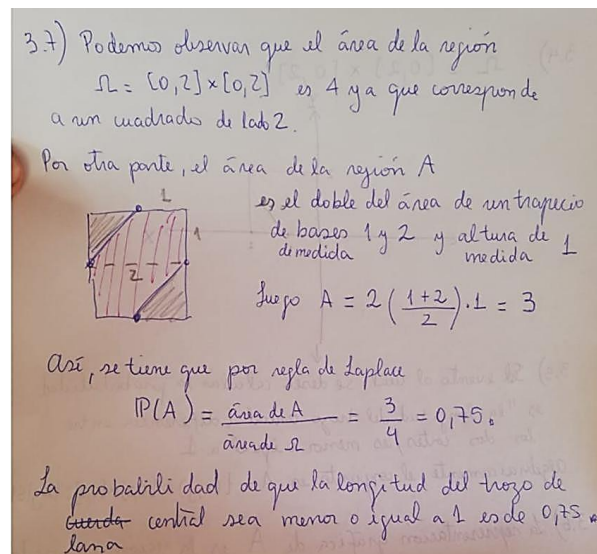 3.7) Podemos observar que el área de la región
Ω = [0,2]×[0,2] es 4 ya que corresponde
a un cuadrado de lado 2.
Por otra parte, el área de la región A
es el doble del área de un trapecio
de bases de medida 1 y 2 y altura de medida 1
1
1
2
luego A = 2 ( (1+2)/2 ) · 1 = 3
Así, se tiene que por regla de Laplace
ℙ(A) = área de A / área de Ω = 3/4 = 0,75.
La probabilidad de que la longitud del trozo de
lana central sea menor o igual a 1 es de 0,75.